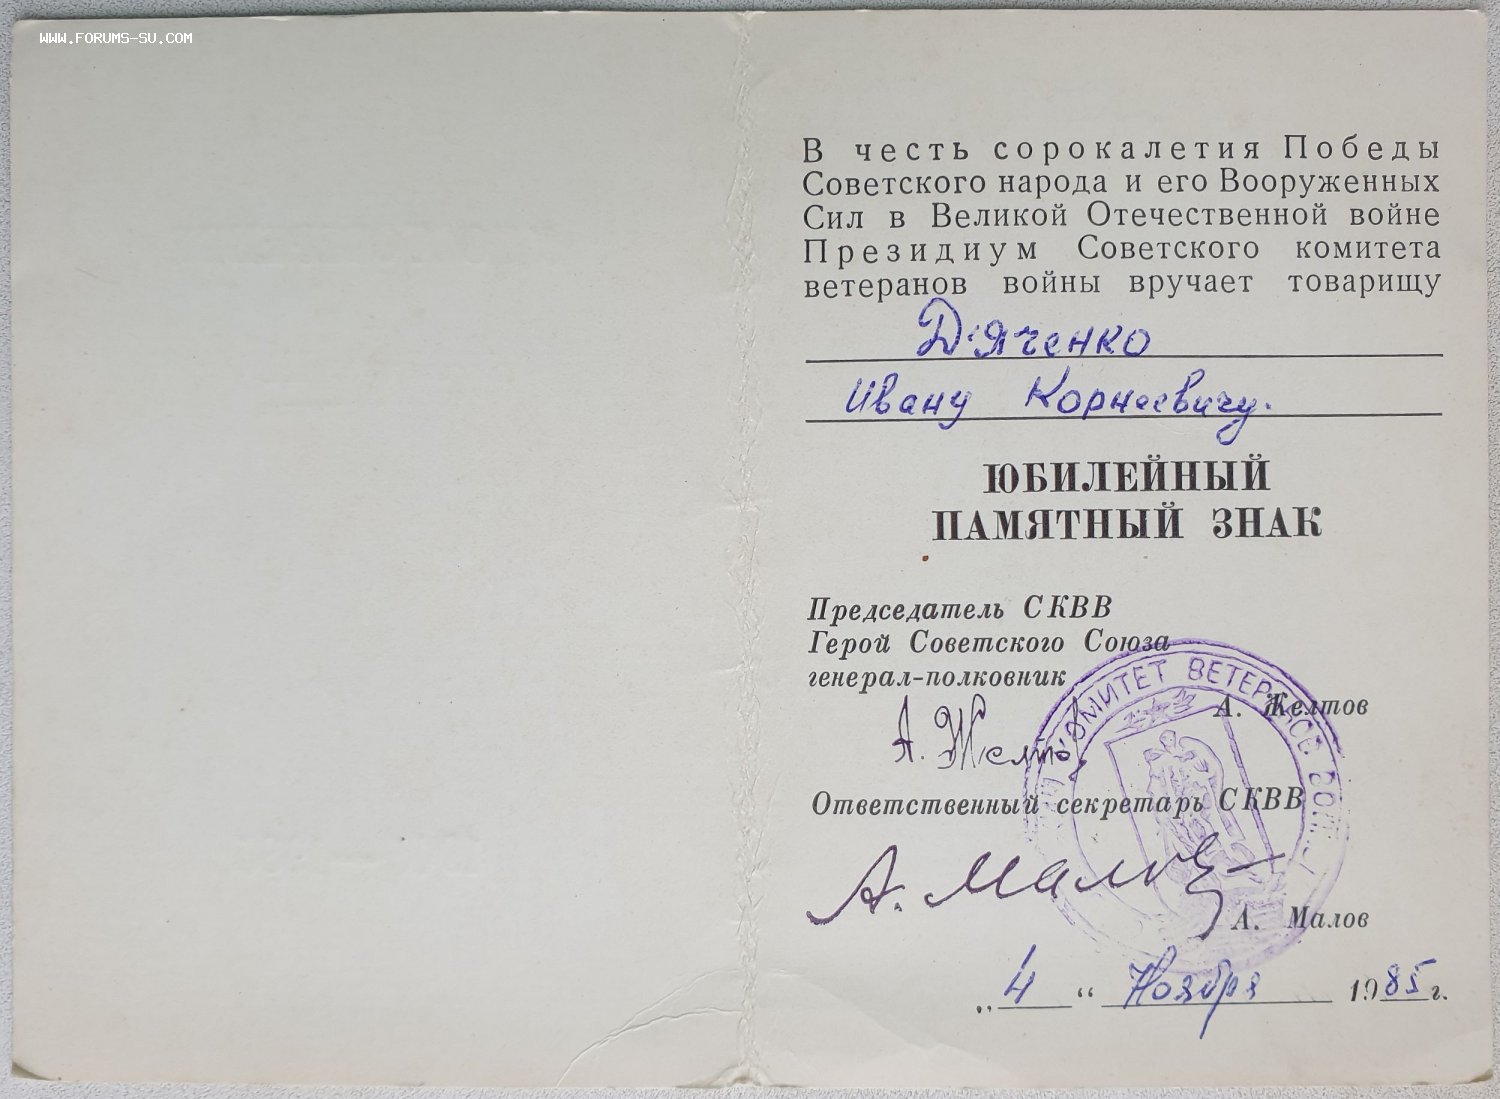 WWW.FORUMS-SU.COM
В честь сорокалетия Победы
Советского народа и его Вооруженных
Сил в Великой Отечественной войне
Президиум Советского комитета
ветеранов войны вручает товарищу
Д'яченко
Ивану Корнеевичу.
ЮБИЛЕЙНЫЙ
ПАМЯТНЫЙ ЗНАК
Председатель СКВВ
Герой Советского Союза
генерал-полковник
А. Желтов
А. Желтов
КОМИТЕТ ВЕТЕРАНОВ
Ответственный секретарь СКВВ
А. Малов
А. Малов
„4“ Ноября 1985 г.